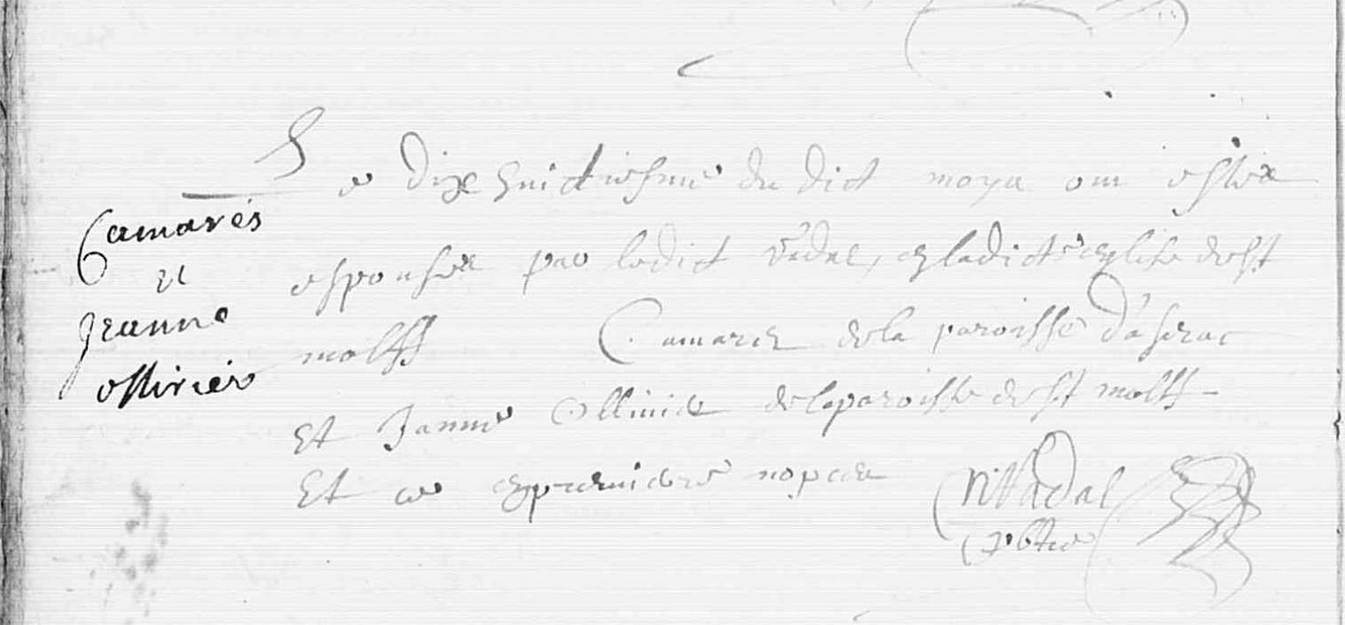 Camarès
et
Jeanne
ollivier
Le dixe huictiesme du dict moys ont estes
espouses par ledict vidal, en ladicte eglise de st
molff Camares de la paroisse d'aserac
Et Janne Ollivier de la paroisse de st molff
Et ce en premieres nopces N Vidal
pbtre